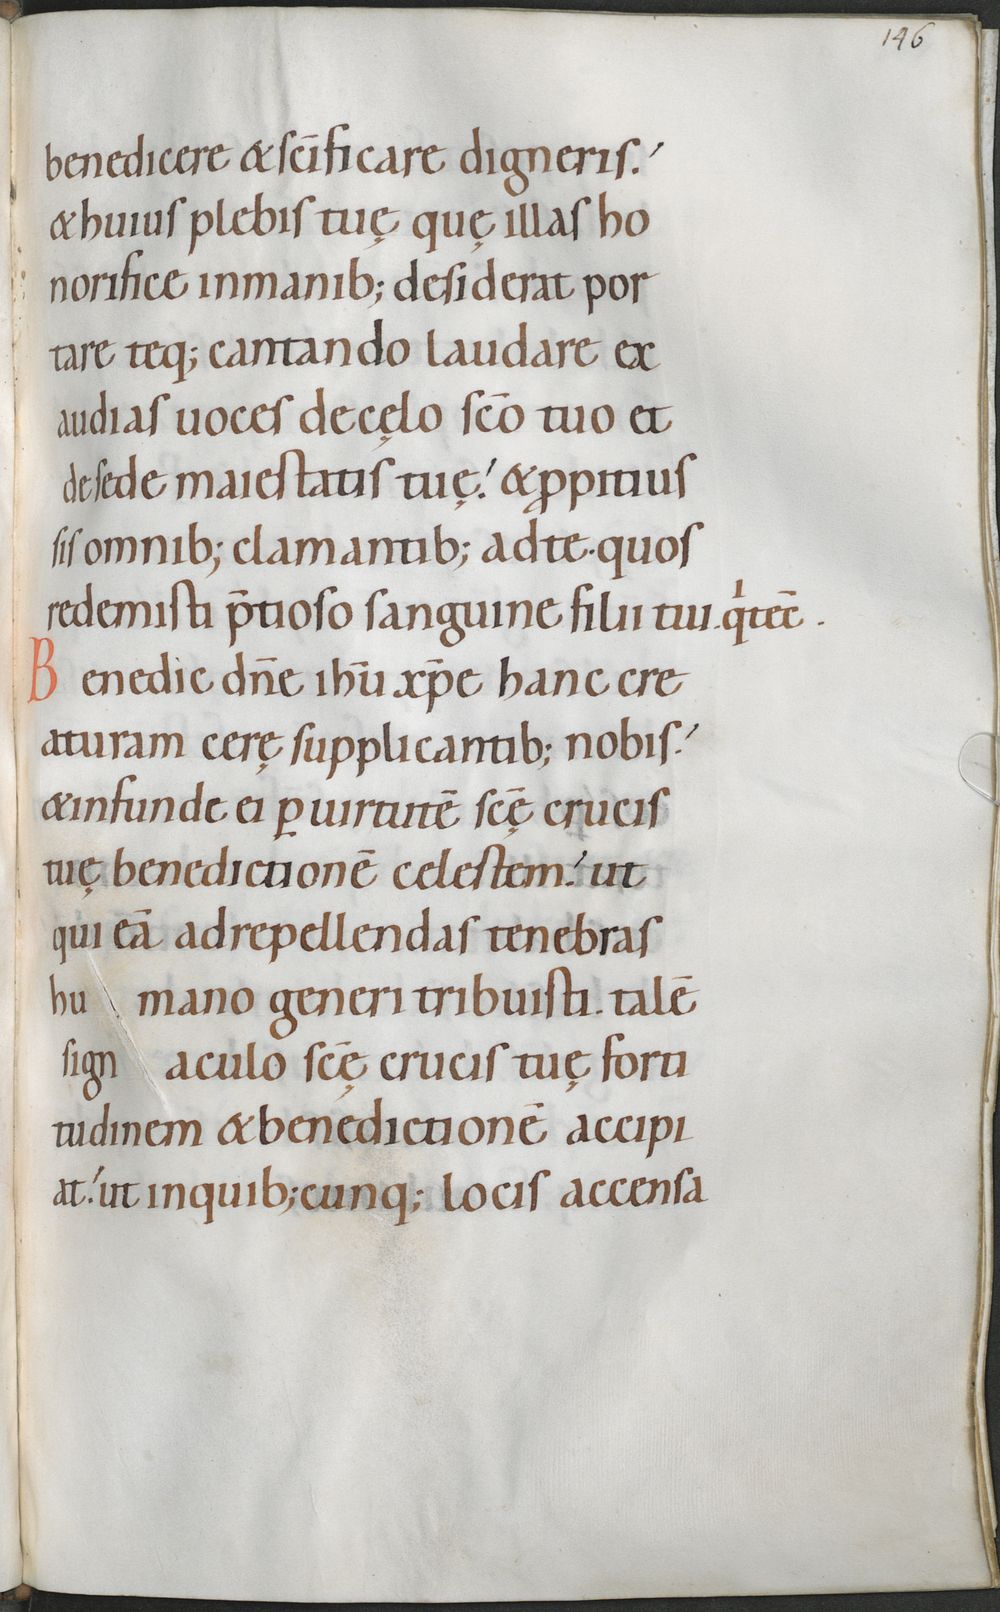 146
benedicere & sc̄ificare digneris.'
& huius plebis tuę quę illas ho
norifice inmanib; desiderat por
tare teq; cantando laudare ex
audias uoces decęlo sc̄o tuo et
desede maiestatis tuę.' & ꝓpitius
sis omnib; clamantib; adte. quos
redemisti p̄tioso sanguine filii tui. qͥ tec̄.
Benedic dn̄e ihū xp̄e hanc cre
aturam cerę supplicantib; nobis.'
& infunde ei ꝑ uirtutē sc̄ę crucis
tuę benedictionē celestem.' ut
qui eā adrepellendas tenebras
hu mano generi tribuisti. talē
sign aculo sc̄ę crucis tuę forti
tudinem & benedictionē accipi
at.' ut inquib;cunq; locis accensa